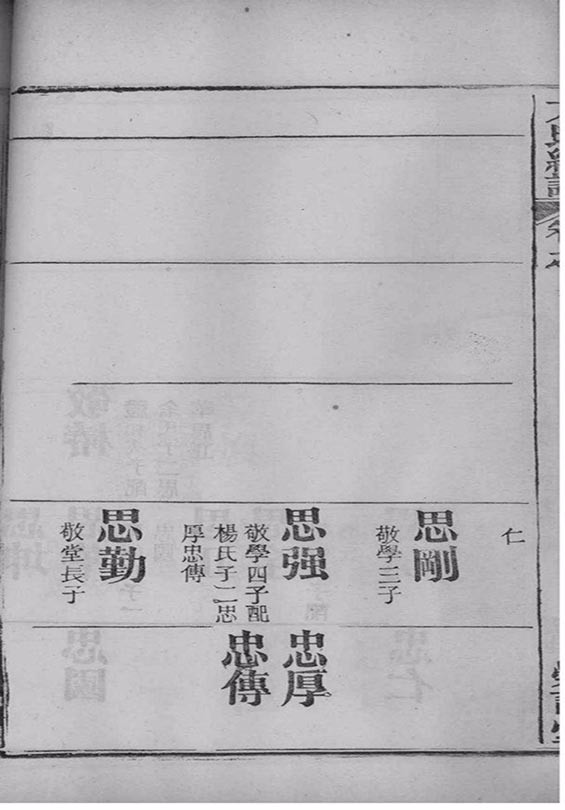 仁
思剛
敬學三子
思强
敬學四子配
楊氏子二忠
厚忠傳
思勤
敬堂長子
忠厚
忠傳